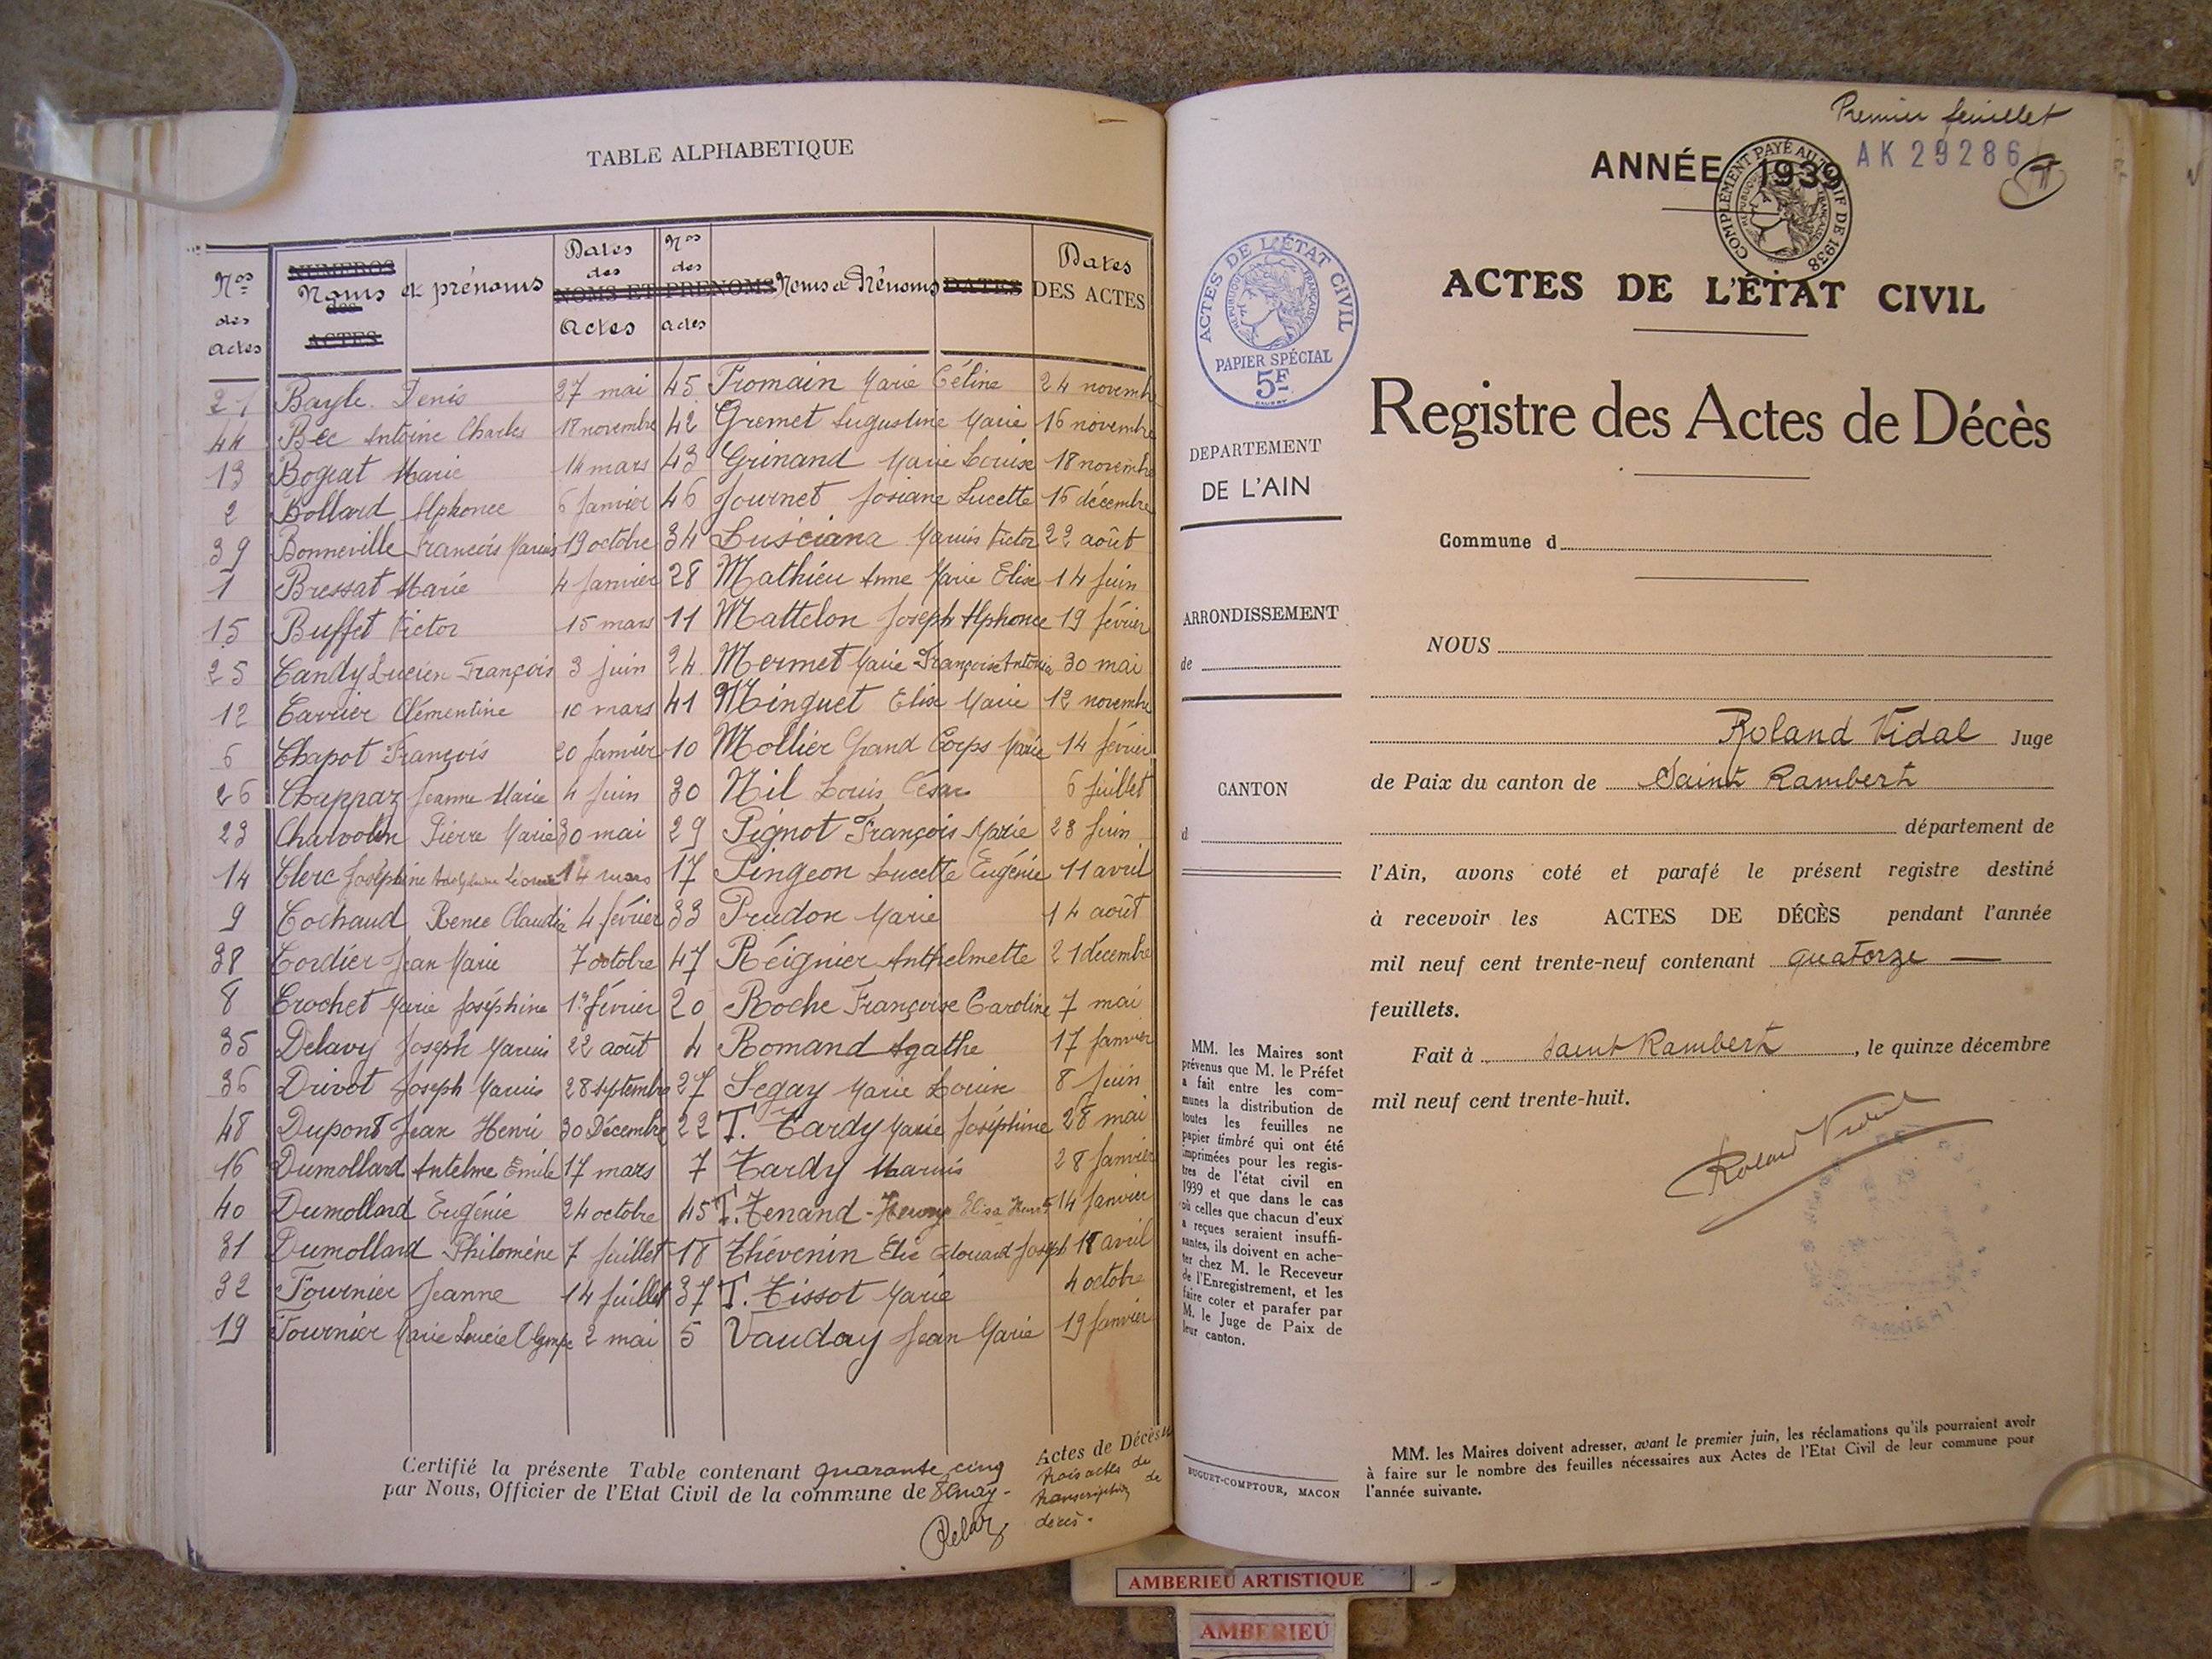 TABLE ALPHABETIQUE
Nos des Actes
NUMEROS
Noms et prénoms
des
ACTES
Dates des
NOMS ET PRENOMS
Actes
Nos des
Actes
Noms et Prénoms
DATES
Dates
DES ACTES
21 Bayle Denis 27 mai
44 Bec Antoine Charles 18 novembre
13 Bograt Marie 14 mars
2 Bollard Alphonce 6 Janvier
39 Bonneville François Marius 19 octobre
1 Bressat Marie 4 Janvier
15 Buffet Victor 15 mars
25 Candy Lucien François 3 juin
12 Carrier Clémentine 10 mars
6 Chapot François 20 Janvier
26 Chappaz Jeanne Marie 4 Juin
23 Charvolin Pierre Marie 30 mai
14 Clerc Joséphine Léonie 14 mars
9 Cochaud Renée Claudia 4 février
38 Cordier Jean Marie 7 octobre
8 Crochet Marie Joséphine 1er février
35 Delavy Joseph Marius 22 août
36 Drivot Joseph Marius 28 septembre
48 Dupont Jean Henri 30 Décembre
16 Dumollard Antelme Emile 17 mars
40 Dumollard Eugénie 24 octobre
31 Dumollard Philomène 7 Juillet
32 Fournier Jeanne 14 Juillet
19 Fournier Marie Lucie Olympe 2 mai
45 Fromain Marie Céline 24 novemb
42 Gremet Augustine Marie 16 novembre
43 Grinand Marie Louise 18 novembre
46 Journet Josiane Lucette 16 décembre
34 Lusciana Marius Victor 22 août
28 Mathieu Anne Marie Elise 14 Juin
11 Mattelon Joseph Alphonce 19 février
24 Mermet Marie Françoise Antonia 30 mai
41 Minguet Elise Marie 12 novembre
10 Mollier Grand Corps Marie 14 février
30 Nil Louis César 6 Juillet
29 Pignot François Marie 23 Juin
17 Pingeon Lucette Eugénie 11 avril
33 Prudon Marie 14 août
47 Réignier Anthelmette 21 décembre
20 Roche Françoise Caroline 7 mai
4 Romand Agathe 17 Janvier
27 Segay Marie Louise 8 Juin
22 T. Tardy Marie Joséphine 28 mai
7 Tardy Marius 28 Janvier
45 T. Tenand Elisa 14 Janvier
18 Thévenin Elie Edouard Joseph 18 avril
37 T. Tissot Marie 4 octobre
5 Vauday Jean Marie 19 Janvier
Certifié la présente Table contenant quarante cinq Actes de Décès
par Nous, Officier de l'Etat Civil de la commune de Tenay.
trois actes de
transcription de
décès.
Premier feuillet
AK 29286
ANNÉE 1939
COMPLÉMENT PAYÉ AU TARIF DE 1938
ACTES DE L'ÉTAT CIVIL
RÉPUBLIQUE FRANÇAISE
PAPIER SPÉCIAL
5F
ACTES DE L'ÉTAT CIVIL
Registre des Actes de Décès
DEPARTEMENT
DE L'AIN
ARRONDISSEMENT
de
CANTON
d
MM. les Maires sont
prévenus que M. le Préfet
a fait entre les com-
munes la distribution de
toutes les feuilles ne
papier timbré qui ont été
imprimées pour les regis-
tres de l'état civil en
1939 et que dans le cas
où celles que chacun d'eux
a reçues seraient insuffi-
santes, ils doivent en ache-
ter chez M. le Receveur
de l'Enregistrement, et les
faire coter et parafer par
M. le Juge de Paix de
leur canton.
BUGUET-COMPTOUR, MACON
Commune d
NOUS
Roland Vidal Juge
de Paix du canton de Saint Rambert
département de
l'Ain, avons coté et parafé le présent registre destiné
à recevoir les ACTES DE DÉCÈS pendant l'année
mil neuf cent trente-neuf contenant quatorze
feuillets.
Fait à Saint Rambert, le quinze décembre
mil neuf cent trente-huit.
Roland Vidal
MM. les Maires doivent adresser, avant le premier juin, les réclamations qu'ils pourraient avoir
à faire sur le nombre des feuilles nécessaires aux Actes de l'Etat Civil de leur commune pour
l'année suivante.
AMBERIEU ARTISTIQUE
AMBERIEU